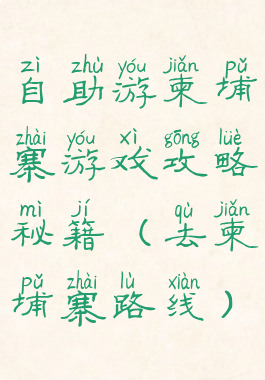 zì zhù yóu jiǎn pǔ
自助游柬埔
zhài yóu xì gōng lüè
寨游戏攻略
mì jí qù jiǎn
秘籍(去柬
pǔ zhài lù xiàn
埔寨路线)